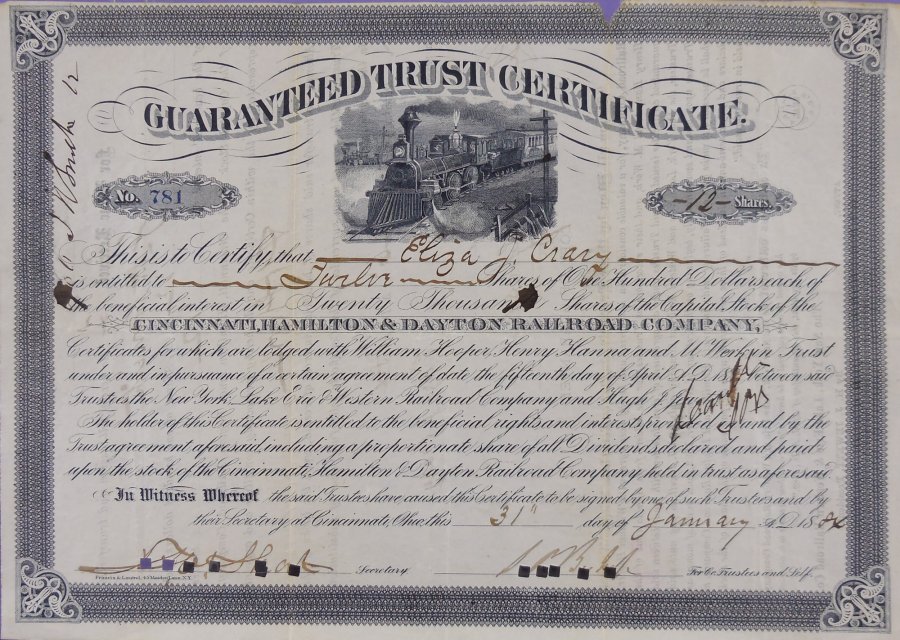 GUARANTEED TRUST CERTIFICATE.
No. 781
-12- Shares.
This is to Certify, that Eliza J. Crary
is entitled to Twelve Shares of One Hundred Dollars each of
the beneficial interest in Twenty Thousand Shares of the Capital Stock of the
CINCINNATI, HAMILTON & DAYTON RAILROAD COMPANY,
Certificates for which are lodged with William Hooper, Henry Hanna and M. Werk in Trust
under and in pursuance of a certain agreement of date the fifteenth day of April A.D. between said
Trustees the New York, Lake Erie & Western Railroad Company and Hugh J.
The holder of this Certificate is entitled to the beneficial rights and interests provided and by the
Trust agreement aforesaid, including a proportionate share of all Dividends declared and paid
upon the stock of the Cincinnati, Hamilton & Dayton Railroad Company held in trust as aforesaid.
In Witness Whereof the said Trustees have caused this Certificate to be signed by one of such Trustees and by
their Secretary at Cincinnati, Ohio, this 31st day of January A.D. 188
Secretary
For Co. Trustees and Self.